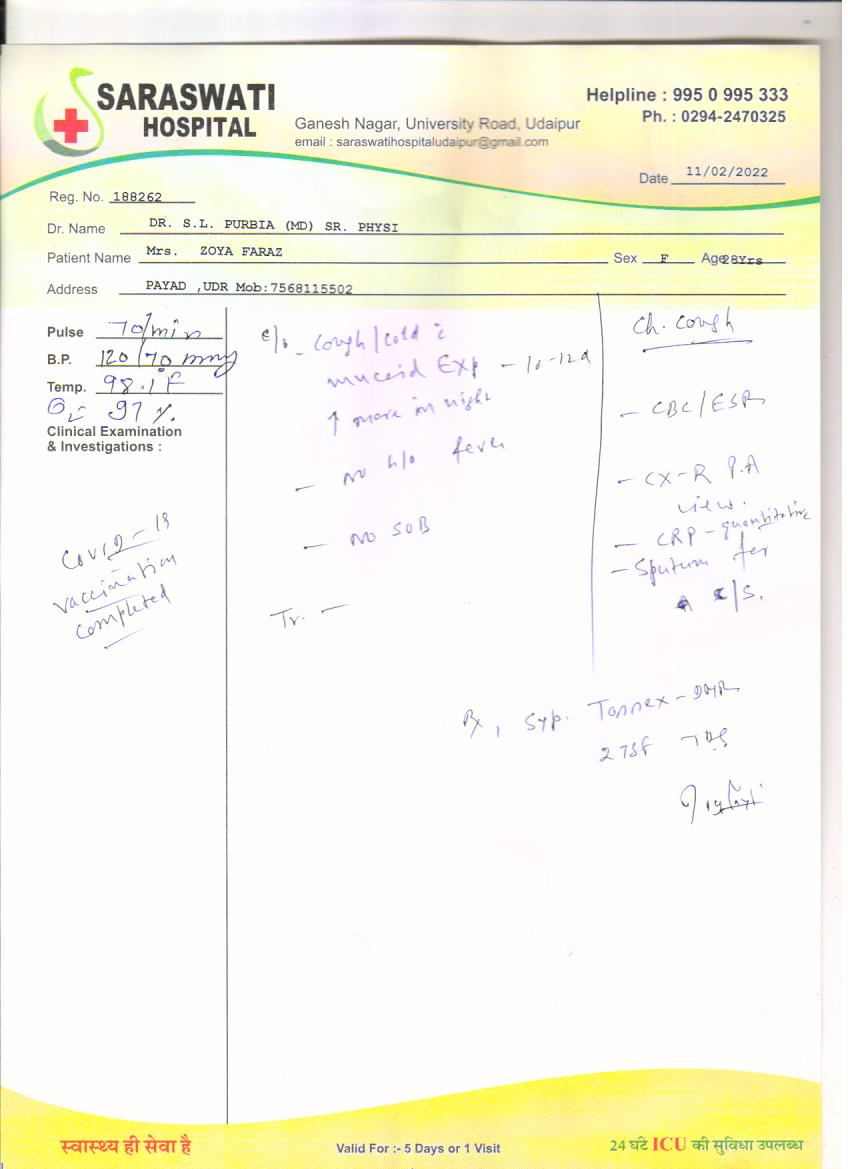 SARASWATI
HOSPITAL
Ganesh Nagar, University Road, Udaipur
email : saraswatihospitaludaipur@gmail.com
Helpline : 995 0 995 333
Ph. : 0294-2470325
Date 11/02/2022
Reg. No. 188262
Dr. Name DR. S.L. PURBIA (MD) SR. PHYSI
Patient Name Mrs. ZOYA FARAZ Sex F Age 28Yrs
Address PAYAD ,UDR Mob:7568115502
Pulse 70/min
B.P. 120/70 mmHg
Temp. 98.1 F
O2 97 %
Clinical Examination
& Investigations :
Covid-19
vaccination
completed
c/o - Cough/cold c̄
mucoid Exp - 10-12d
↑ more in night
- No h/o fever
- No SOB
Tr. -
Ch. Cough
- CBC/ESR
- CX-R P.A
view.
- CRP - quantitative
- Sputum for
c/s.
Rx, Syp. Tonnex - DMR
2 TSF TDS
स्वास्थ्य ही सेवा है
Valid For :- 5 Days or 1 Visit
24 घंटे ICU की सुविधा उपलब्ध